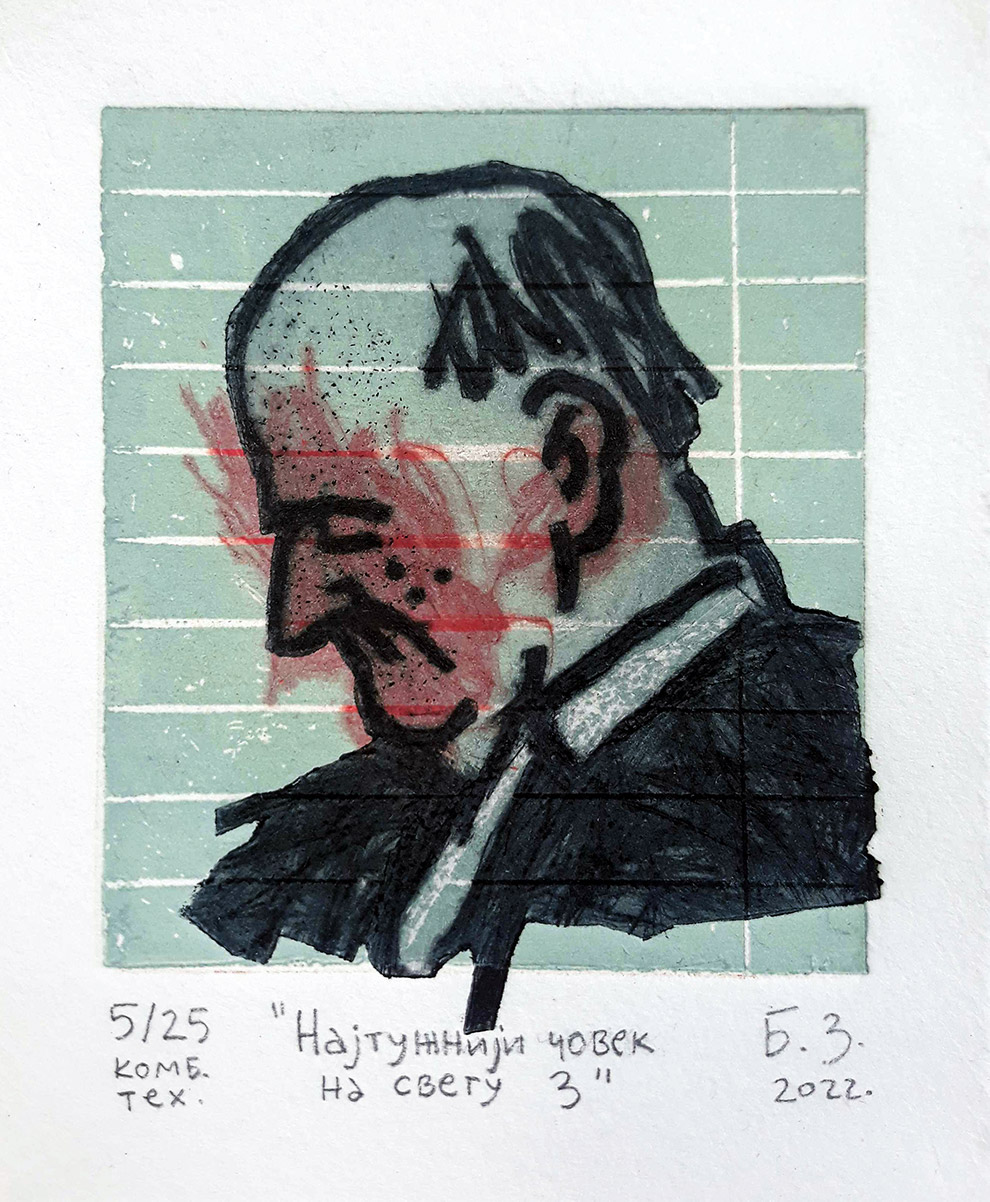 5/25
комб.
тех.
"Најтужнији човек
на свету 3"
Б. З.
2022.